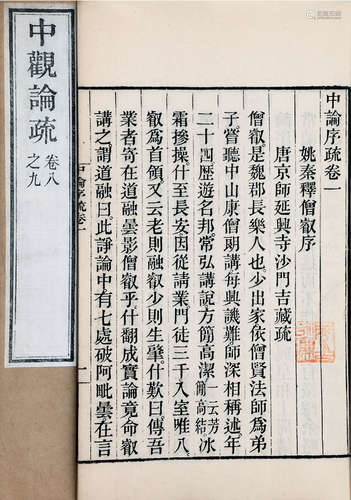 中觀論疏 卷八之九
中論序疏卷一
姚秦釋僧叡序
唐京師延興寺沙門吉藏疏
僧叡是魏郡長樂人也少出家依僧賢法師為弟
子嘗聽中山康僧朗講每興譏難師深相稱述年
二十四歷遊名邦常弘講說方簡高潔一云芳簡高結冰
霜摻操什至長安因從請業門徒三千入室唯八
叡為首領又云老則融叡少則生肇什歎曰傳吾
業者寄在道融曇影僧叡乎什翻成實論竟命叡
講之謂道融曰此諍論中有七處破阿毗曇在言
中論序疏卷一
一